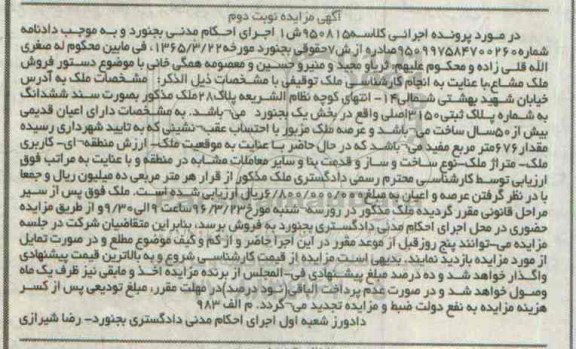 آگهی مزایده نوبت دوم
در مورد پرونده اجرائی کلاسه ۹۵۰۸۱۵ش۱ اجرای احکام مدنی بجنورد و به موجب دادنامه
شماره ۹۵۰۹۹۷۵۸۴۷۰۰۲۶۰ صادره از ش۷حقوقی بجنورد مورخه ۱۳۶۵/۳/۲۲، فی مابین محکوم له صغری
الله قلی زاده و محکوم علیهم: ثریا و مجید و منیر و حسین و معصومه همگی خانی با موضوع دستور فروش
ملک مشاع،با عنایت به انجام کارشناسی ملک توقیفی با مشخصات ذیل الذکر: مشخصات ملک به آدرس
خیابان شهید بهشتی شمالی ۱۴- انتهای کوچه نظام الشریعه پلاک ۲۸ ملک مذکور بصورت سند ششدانگ
به شماره پلاک ثبتی ۳۱۵۰ اصلی واقع در بخش یک بجنورد می‌باشد. به مشخصات دارای اعیان قدیمی
بیش از ۵۰سال ساخت می‌باشد و عرصه ملک مزبور با احتساب عقب‌نشینی که به تایید شهرداری رسیده
مقدار ۶۷۶متر مربع مفید می‌باشد که در حال حاضر با عنایت به موقعیت ملک- ارزش منطقه‌ای- کاربری
ملک- متراژ ملک-نوع ساخت و ساز و قدمت بنا و سایر معاملات مشابه در منطقه و با عنایت به مراتب فوق
ارزیابی توسط کارشناسی محترم رسمی دادگستری ملک مذکور از قرار هر متر مربعی ده میلیون ریال و جمعا
با در نظر گرفتن عرصه و اعیان به مبلغ ۶/۸۰۰/۰۰۰/۰۰۰ریال ارزیابی شده است. ملک فوق پس از سیر
مراحل قانونی مقرر گردیده ملک مذکور در روز سه شنبه مورخ ۹۶/۳/۲۳ساعت ۹ الی ۹/۳۰و از طریق مزایده
حضوری در محل اجرای احکام مدنی دادگستری بجنورد به فروش برسد، بنابراین متقاضیان شرکت در جلسه
مزایده می‌توانند پنج روز قبل از موعد مقرر در این اجرا حاضر و از کم و کیف موضوع مطلع و در صورت تمایل
از مورد مزایده بازدید نمایند. بدیهی است مزایده از قیمت کارشناسی شروع و به بالاترین قیمت پیشنهادی
واگذار خواهد شد و ده درصد مبلغ پیشنهادی فی‌المجلس از برنده مزایده اخذ و مابقی نیز ظرف یک ماه
وصول خواهد شد و در صورت عدم پرداخت الباقی(نود درصد)در مهلت مقرر، مبلغ تودیعی پس از کسر
هزینه مزایده به نفع دولت ضبط و مزایده تجدید می‌گردد. م الف ۹۸۳
دادورز شعبه اول اجرای احکام مدنی دادگستری بجنورد- رضا شیرازی